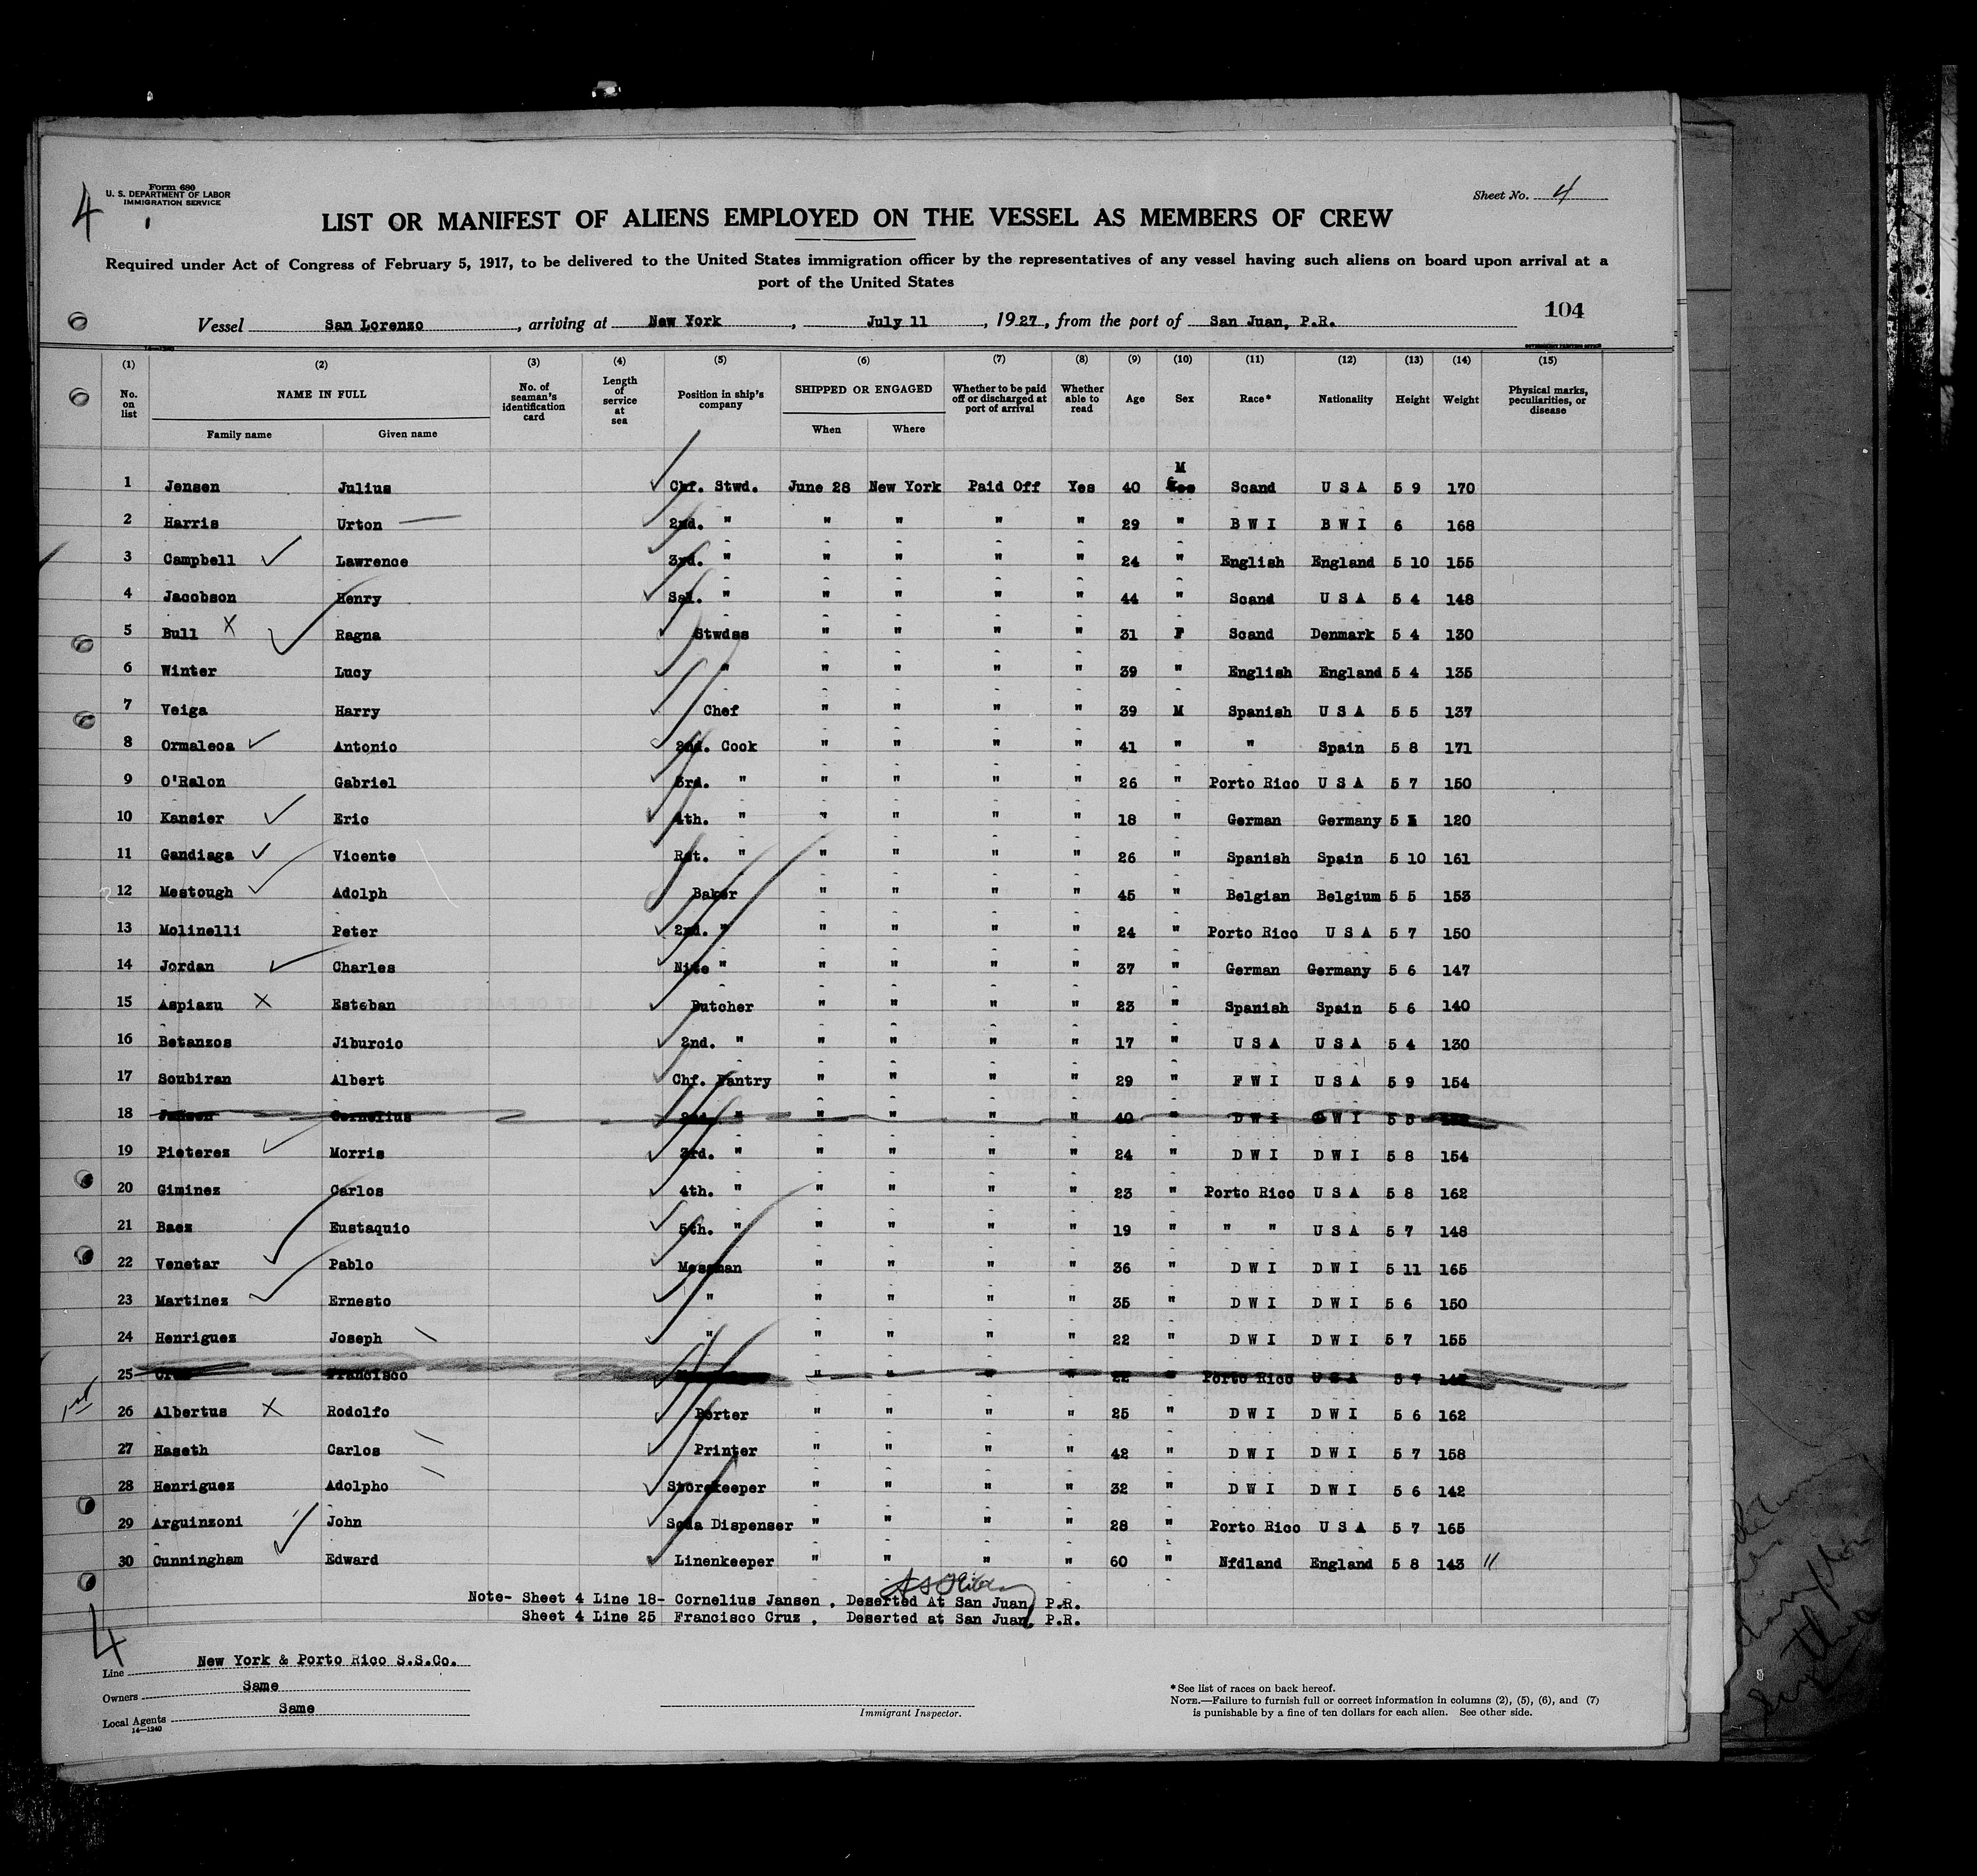 4
Form 680
U. S. DEPARTMENT OF LABOR
IMMIGRATION SERVICE
Sheet No. 4
LIST OR MANIFEST OF ALIENS EMPLOYED ON THE VESSEL AS MEMBERS OF CREW
Required under Act of Congress of February 5, 1917, to be delivered to the United States immigration officer by the representatives of any vessel having such aliens on board upon arrival at a
port of the United States
104
Vessel San Lorenzo, arriving at New York, July 11, 1927, from the port of San Juan, P.R.
(1) (2) (3) (4) (5) (6) (7) (8) (9) (10) (11) (12) (13) (14) (15)
No. on list NAME IN FULL No. of seaman's identification card Length of service at sea Position in ship's company SHIPPED OR ENGAGED Whether to be paid off or discharged at port of arrival Whether able to read Age Sex Race* Nationality Height Weight Physical marks, peculiarities, or disease
Family name Given name When Where
M
1 Jensen Julius Chf. Stwd. June 28 New York Paid Off Yes 40 Yes Scand U S A 5 9 170
2 Harris Urton 2nd. " " " " " 29 " B W I B W I 6 168
3 Campbell Lawrence 3rd. " " " " " 24 " English England 5 10 155
4 Jacobson Henry Sal. " " " " " 44 " Scand U S A 5 4 148
5 Bull X Ragna Stwdss " " " " 31 F Scand Denmark 5 4 130
6 Winter Lucy " " " " " 39 " English England 5 4 135
7 Veiga Harry Chef " " " " 39 M Spanish U S A 5 5 137
8 Ormaleca Antonio 2nd. Cook " " " " 41 " " Spain 5 8 171
9 O'Ralon Gabriel 3rd. " " " " " 26 " Porto Rico U S A 5 7 150
10 Kansier Eric 4th. " " " " " 18 " German Germany 5 120
11 Gandiaga Vicente Rst. " " " " " 26 " Spanish Spain 5 10 161
12 Mestough Adolph Baker " " " " 45 " Belgian Belgium 5 5 153
13 Molinelli Peter 2nd. " " " " " 24 " Porto Rico U S A 5 7 150
14 Jordan Charles Nite " " " " " 37 " German Germany 5 6 147
15 Aspiazu X Esteban Butcher " " " " 23 " Spanish Spain 5 6 140
16 Betanzos Jiburcio 2nd. " " " " " 17 " U S A U S A 5 4 130
17 Soubiran Albert Chf. Pantry " " " " 29 " F W I U S A 5 9 154
18 Jansen Cornelius 2nd. " " " " " 40 " D W I D W I 5 5
19 Pieterez Morris 3rd. " " " " " 24 " D W I D W I 5 8 154
20 Giminez Carlos 4th. " " " " " 23 " Porto Rico U S A 5 8 162
21 Baez Eustaquio 5th. " " " " " 19 " " " U S A 5 7 148
22 Venetar Pablo Messman " " " " 36 " D W I D W I 5 11 165
23 Martinez Ernesto " " " " " 35 " D W I D W I 5 6 150
24 Henriguez Joseph " " " " " 22 " D W I D W I 5 7 155
25 Cruz Francisco " " " " 22 " Porto Rico U S A 5 7
26 Albertus X Rodolfo Porter " " " " 25 " D W I D W I 5 6 162
27 Haseth Carlos Printer " " " " 42 " D W I D W I 5 7 158
28 Henriguez Adolpho Storekeeper " " " " 32 " D W I D W I 5 6 142
29 Arguinzoni John Soda Dispenser " " " " 28 " Porto Rico U S A 5 7 165
30 Cunningham Edward Linenkeeper " " " " 60 " Nfdland England 5 8 143 11
Note- Sheet 4 Line 18- Cornelius Jansen , Deserted At San Juan, P.R.
Sheet 4 Line 25 Francisco Cruz , Deserted at San Juan, P.R.
4
Line New York & Porto Rico S.S.Co.
Owners Same
Local Agents Same
14—1240
Immigrant Inspector.
*See list of races on back hereof.
NOTE.—Failure to furnish full or correct information in columns (2), (5), (6), and (7)
is punishable by a fine of ten dollars for each alien. See other side.